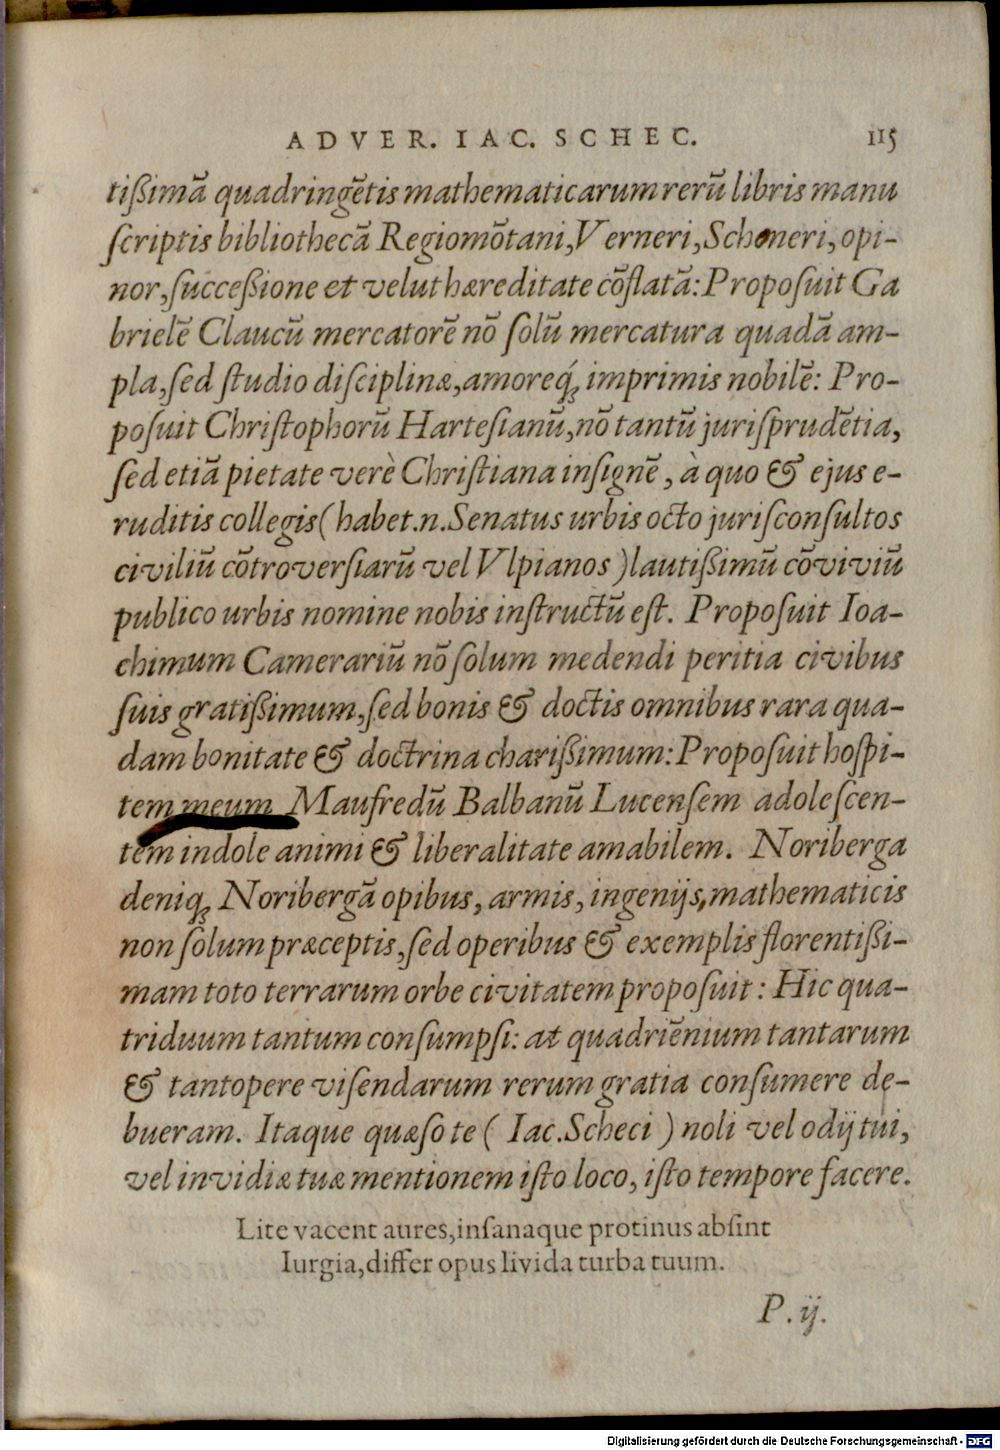 ADVER. IAC. SCHEC. 115
tißimā quadringētis mathematicarum rerū libris manu
ſcriptis bibliothecā Regiomōtani, Verneri, Schoneri, opi-
nor, ſucceßione et velut hæreditate cōflatā: Propoſuit Ga
brielē Claucū mercatorē nō ſolū mercatura quadā am-
pla, ſed ſtudio diſciplinæ, amoreq́; imprimis nobilē: Pro-
poſuit Chriſtophorū Harteſianū, nō tantū juriſprudētia,
ſed etiā pietate verè Chriſtiana inſignē, à quo & ejus e-
ruditis collegis (habet.n. Senatus urbis octo juriſconſultos
civiliū cōtroverſiarū vel Vlpianos) lautißimū cōviviū
publico urbis nomine nobis inſtructū eſt. Propoſuit Ioa-
chimum Camerariū nō ſolum medendi peritia civibus
ſuis gratißimum, ſed bonis & doctis omnibus rara qua-
dam bonitate & doctrina charißimum: Propoſuit hoſpi-
tem meum Maufredū Balbanū Lucenſem adoleſcen-
tem indole animi & liberalitate amabilem. Noriberga
deniq; Noribergā opibus, armis, ingenijs, mathematicis
non ſolum præceptis, ſed operibus & exemplis florentißi-
mam toto terrarum orbe civitatem propoſuit: Hic qua-
triduum tantum conſumpſi: at quadriēnium tantarum
& tantopere viſendarum rerum gratia conſumere de-
bueram. Itaque quæſo te (Iac. Scheci) noli vel odij tui,
vel invidiæ tuæ mentionem iſto loco, iſto tempore facere.
Lite vacent aures, inſanaque protinus abſint
Iurgia, differ opus livida turba tuum.
P. ij.
Digitalisierung gefördert durch die Deutsche Forschungsgemeinschaft - DFG